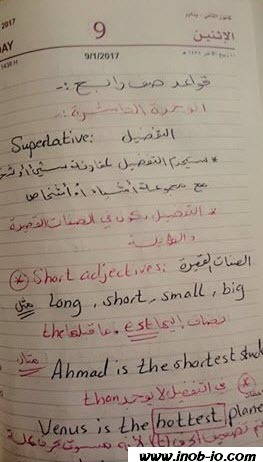 2017
كانون الثاني - يناير
9
الاثنين
DAY
9/1/2017
1438 H
قواعد صف رابع :-
الوحدة العاشرة :-
Superlative: التفضيل
* نستخدم التفضيل لمقارنة شيء أو شخص
مع مجموعة أشياء أو أشخاص
* التفضيل يكون في الصفات القصيرة
والطويلة
* Short adjectives: الصفات القصيرة
long, short, small, big مثل
تضاف إليها est ما قبلها the
Ahmad is the shortest مثال
* في التفضيل لا يوجد than
Venus is the hottest plane
www.inob-io.com